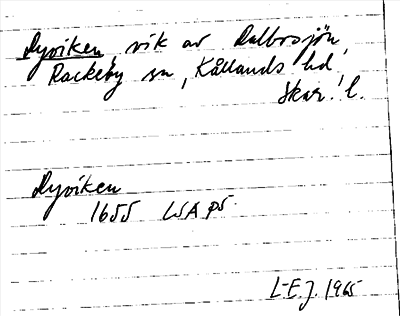 Dyviken, vik av Dalbosjön,
Rackeby sn, Kållands hd,
Skar. l.
Dyviken
1655 LSA P5
L-E.J. 1965